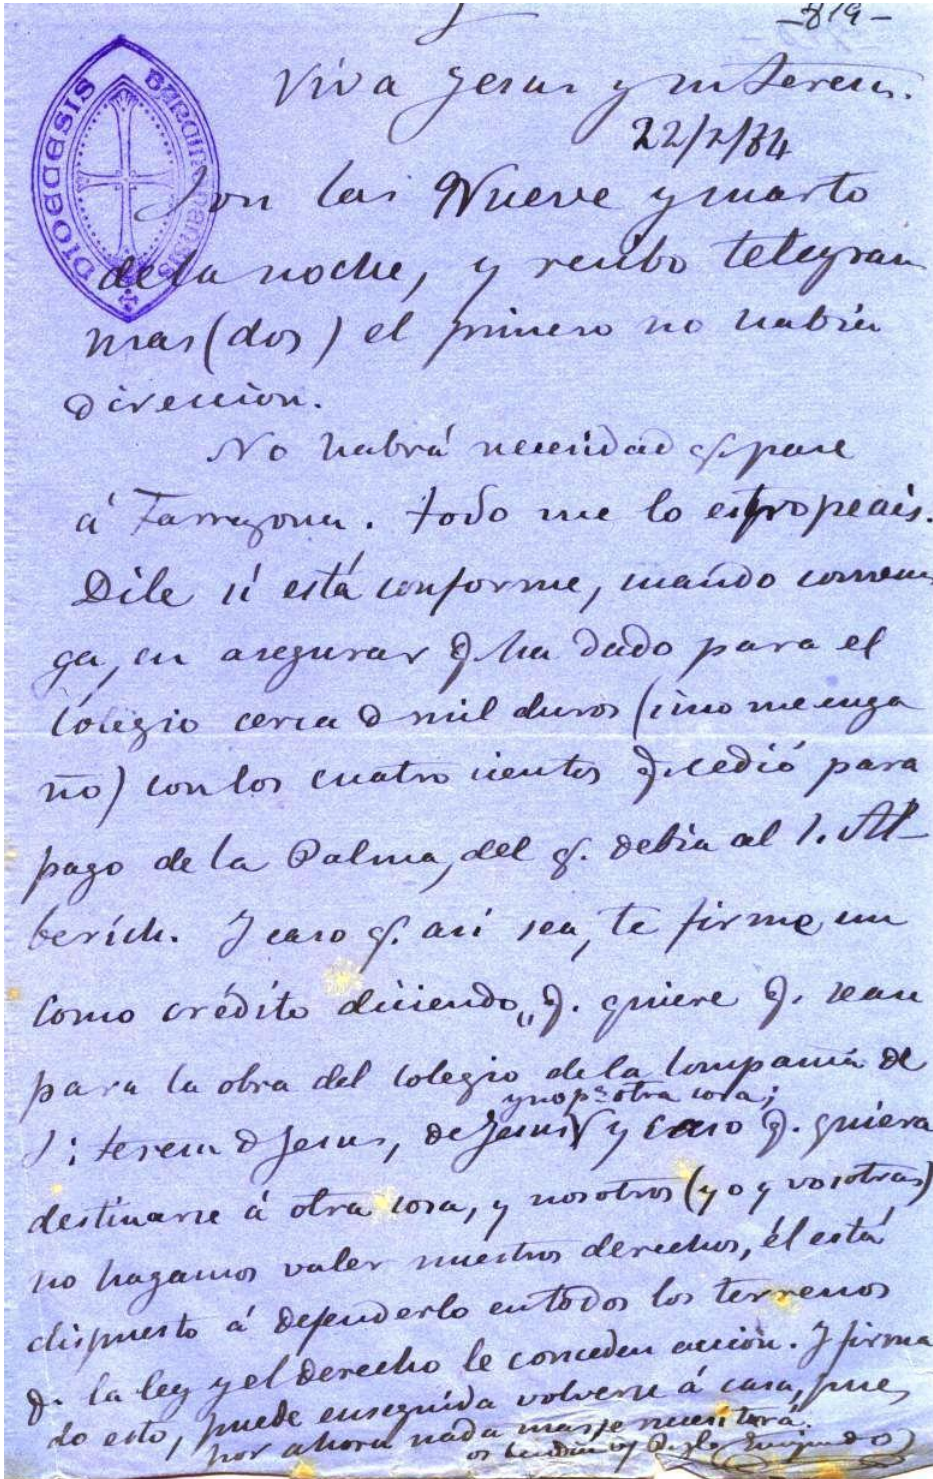 -819-
Viva Jesus y su Teresa.
22/2/84
DIOECESIS BARCINONENSIS
Son las Nueve y cuarto
de la noche, y recibo telegram
mas (dos) el primero no habia
direccion.
No habrá necesidad q. pase
á Tarragona. todo me lo estropeais.
Dile si está conforme, cuando conven
ga, en asegurar q. ha dado para el
colegio cerca d mil duros (sino me enga
ño) con los cuatro cientos q. cedió para
pago de la Palma, del q. debia al S. Al-
berich. Y caso q. asi sea, te firme un
como crédito diciendo „q. quiere q. sean
para la obra del colegio de la Compañia de
y no p.ª otra cosa;
S; teresa d Jesus, de Jesus y caso q. quiera
destinarse á otra cosa, y nosotros (yo y vosotras)
no hagamos valer nuestros derechos, él está
dispuesto á defenderlo en todos los terrenos
q. la ley y el derecho le conceden accion. Y firma
do esto, puede enseguida volverse á casa, pues
por ahora nada mas se necesitará.
os bendice